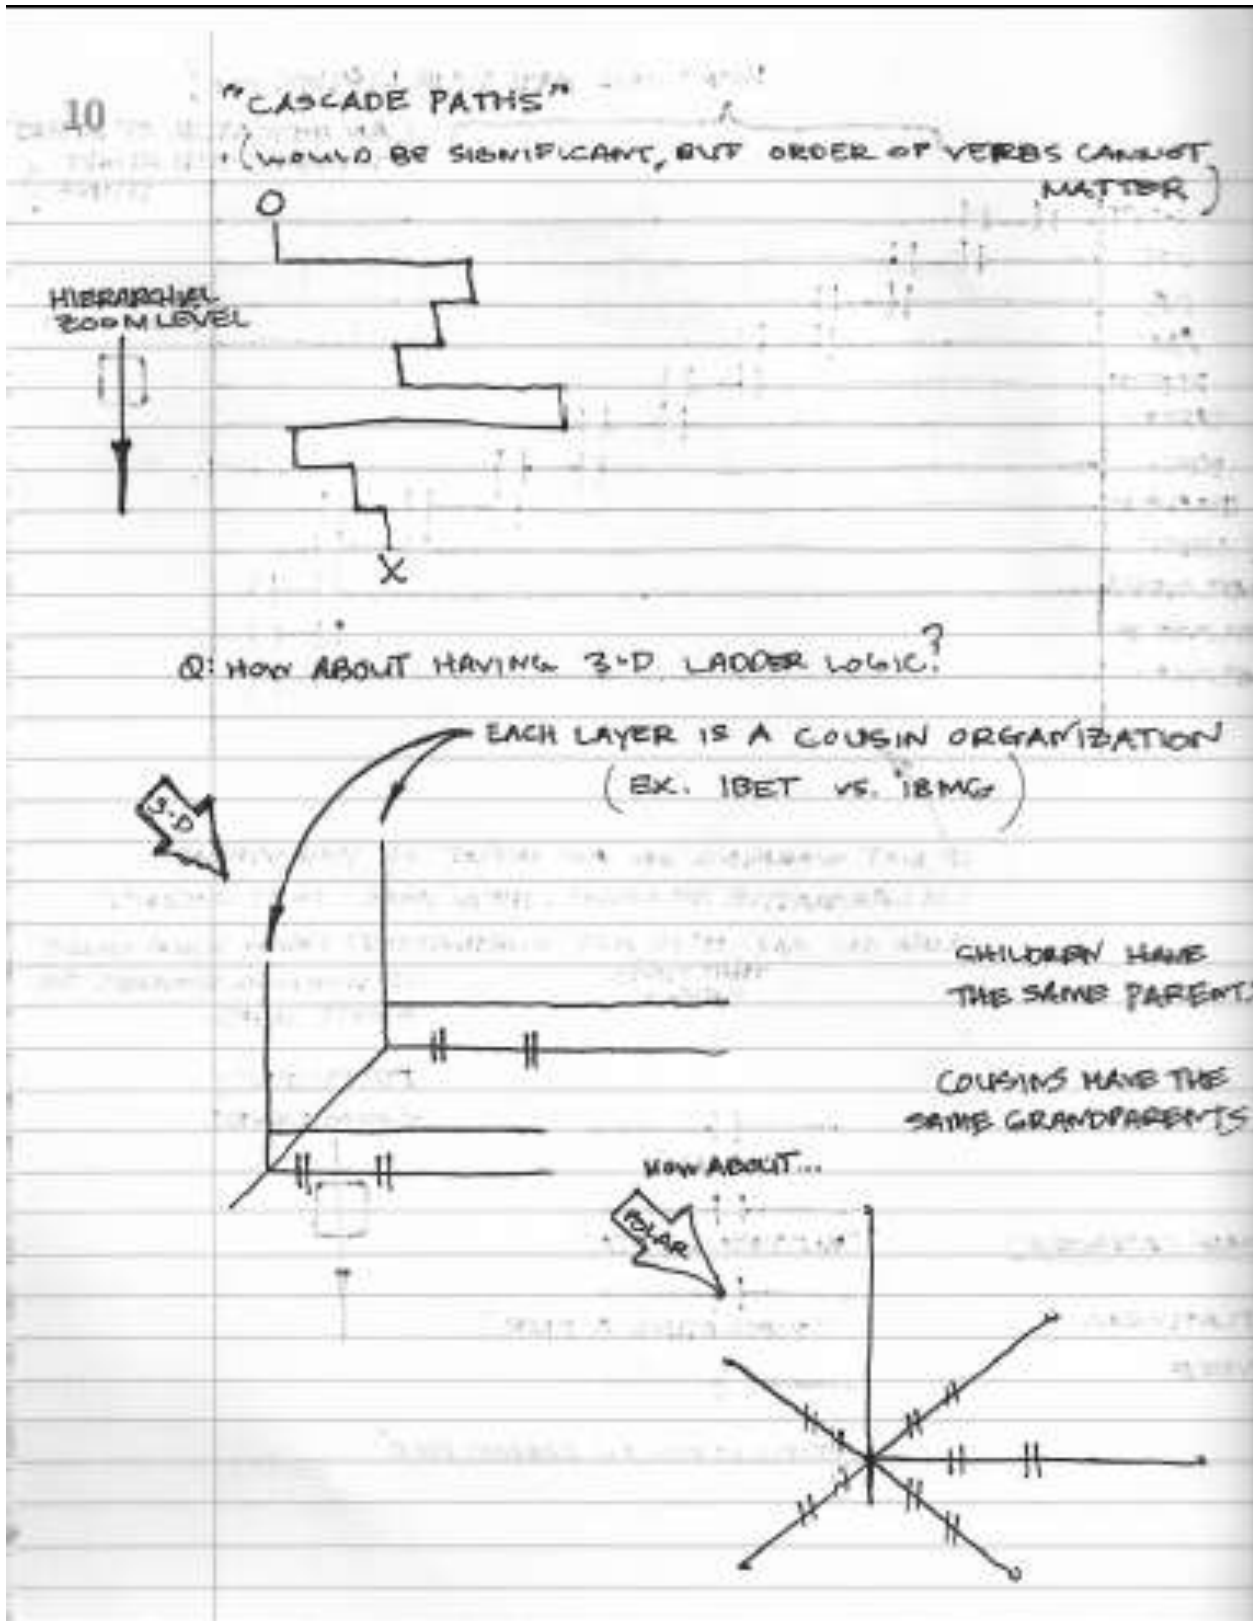 10
"CASCADE PATHS"
(WOULD BE SIGNIFICANT, BUT ORDER OF VERBS CANNOT
MATTER)
O
HIERARCHIAL
ZOOM LEVEL
X
Q: HOW ABOUT HAVING 3-D LADDER LOGIC?
EACH LAYER IS A COUSIN ORGANIZATION
(EX. IBET VS. IBMG)
3-D
CHILDREN HAVE
THE SAME PARENTS
COUSINS HAVE THE
SAME GRANDPARENTS
HOW ABOUT...
POLAR